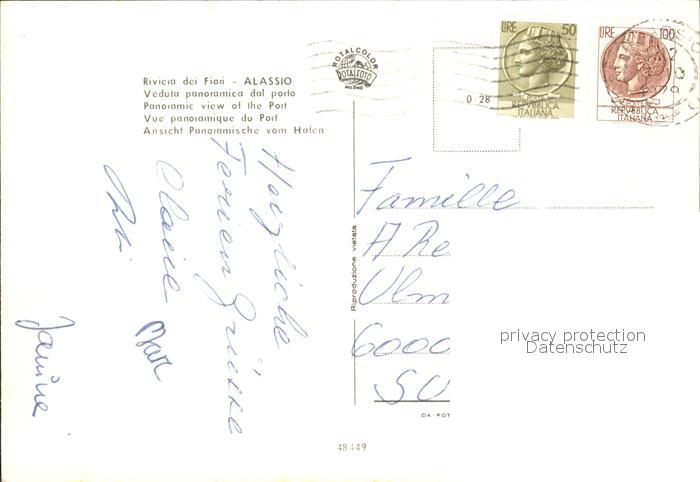 Riviera dei Fiori - ALASSIO
Veduta panoramica dal porto
Panoramic view of the Port
Vue panoramique du Port
Ansicht Panoramische vom Hafen
ROTALCOLOR
ROTALFOTO
MILANO
0 28
LIRE 50
REPVBBLICA
ITALIANA
LIRE 100
REPVBBLICA
ITALIANA
Herzliche
Ferien Grüsse
Janine
Riproduzione vietata
Famille
A Re
Ulm
6000
SU
privacy protection
Datenschutz
DA FOT
48449